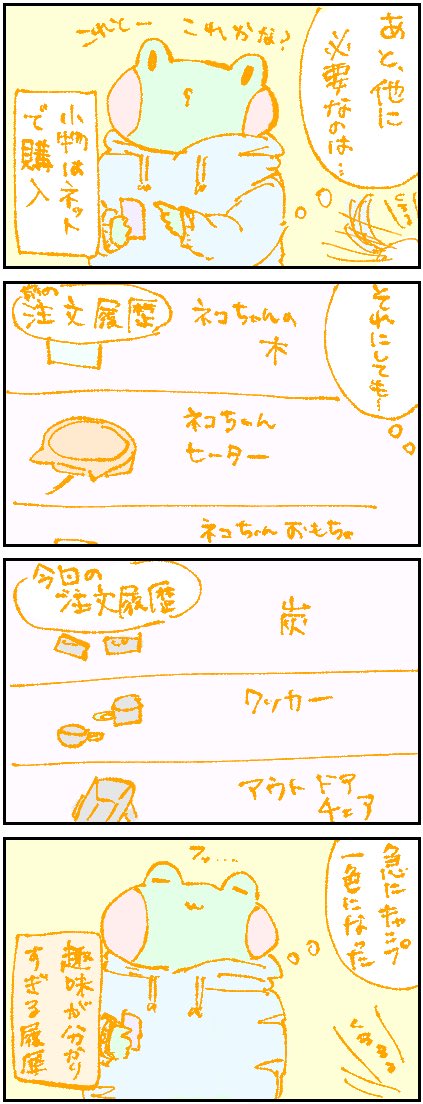 あと、他に
必要なのは…
これかな?
これとー
小物はネット
で購入
それにしても…
前の
注文履歴
ネコちゃんの
木
ネコちゃん
ヒーター
ネコちゃんおもちゃ
今回の
ご注文履歴
炭
クッカー
アウトドア
チェア
急にキャンプ
一色になった
フッ…
趣味が分かり
すぎる履歴